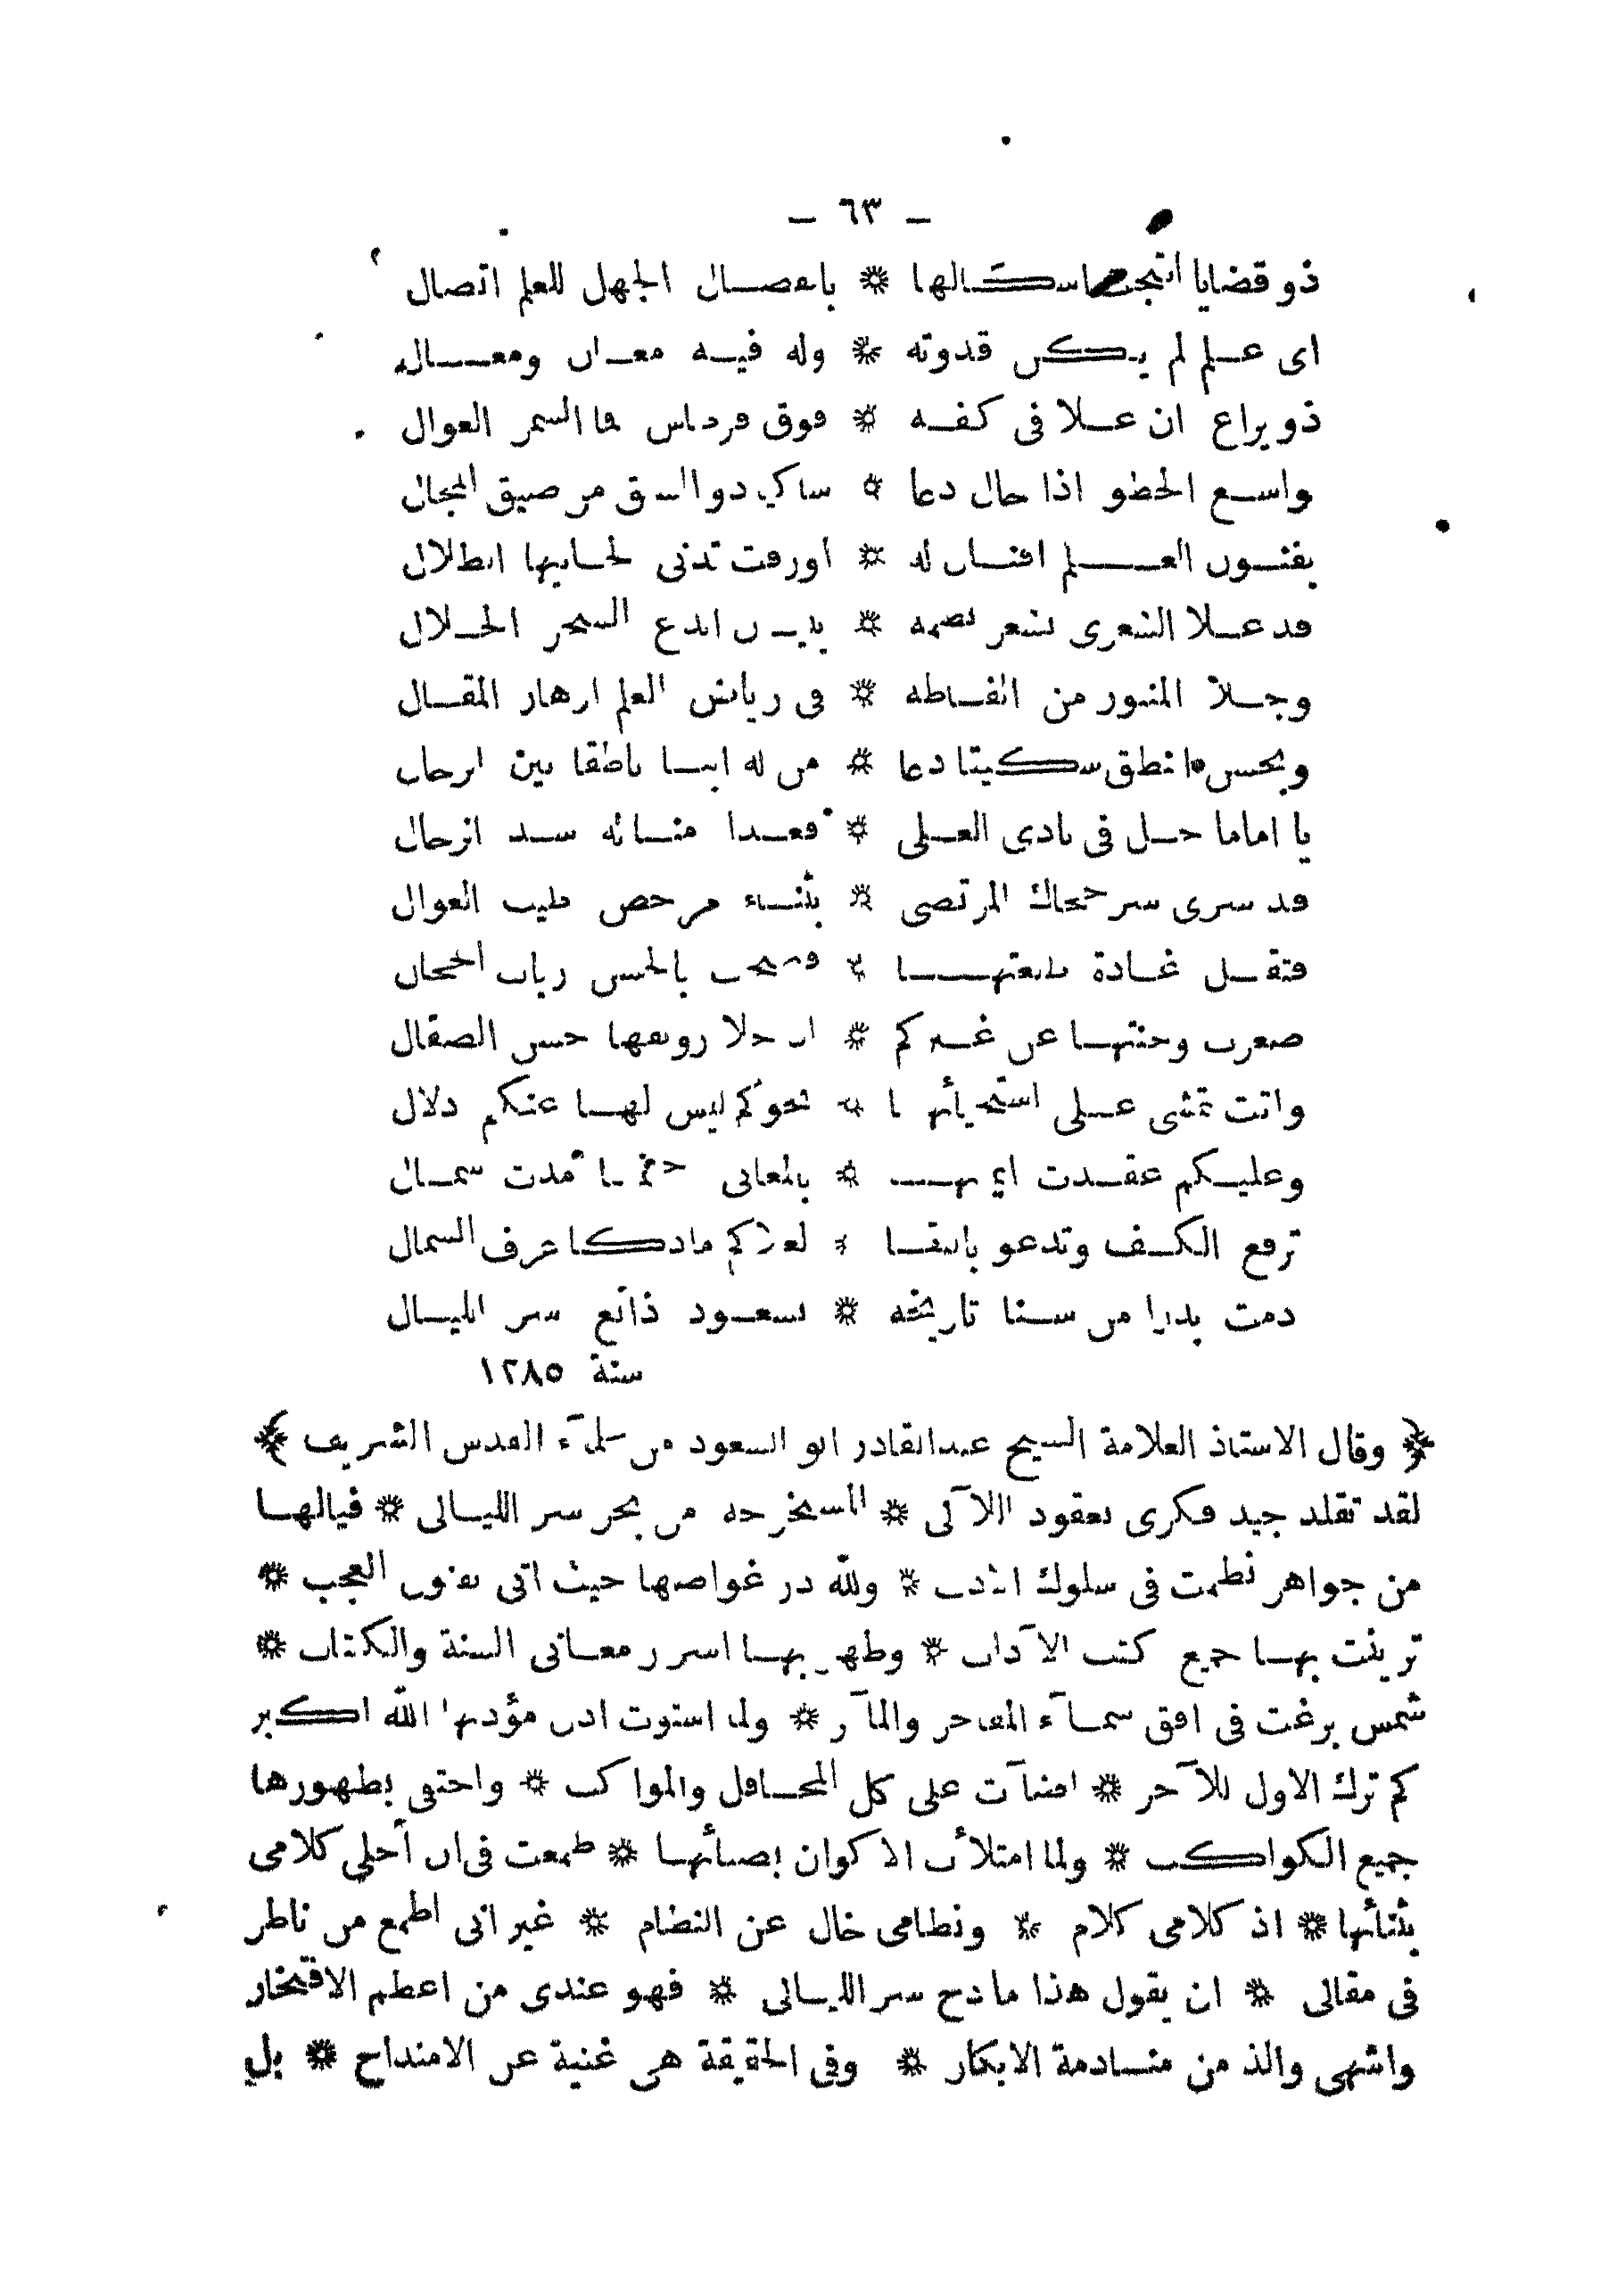 — ٦٣ —
ذو قضايا اشكالها * بانفصال الجهل للعلم اتصال
اى علم لم يكن قدوته * وله فيه معان ومعال
ذو يراع ان علا فى كفه * فوق قرطاس فا السمر العوال
واسع الخطو اذا حال دعا * ذو السبق من ضيق المجال
بفنون العلم افنان له * اورقت تدنى لجانيها الظلال
قد علا الشعرى بشعر نظمه * ابدع السحر الحلال
وجلا المنثور من الفاظه * فى رياض العلم ازهار المقال
وبحسن النطق سكيتا دعا * من له ناطقا بين الرجال
يا اماما حل فى نادى العلى * فغدا مغناه شد الرحال
قد سرى سر حجاك المرتضى * بثناء مرخص طيب الغوال
فتقبل غادة طلعتها * بالحسن ربات الحجال
وجنتها عن غيركم * رونقها حسن الصقال
واتت تمشى على استحيائها * نحوكم ليس لها عنكم دلال
وعليكم عقدت * بالمعانى قدت شمال
ترفع الكف وتدعو بالبقا * لعلاكم عرف الشمال
دمت بدرا من سنا تاريخه * بسعود ذائع سر الليال
سنة ١٢٨٥
﴿ وقال الاستاذ العلامة الشيخ عبدالقادر ابو السعود من علمآء القدس الشريف ﴾
لقد تقلد جيد فكرى بعقود اللآلى * المستخرجه من بحر سر الليالى * فيالها
من جواهر نظمت فى سلوك الادب * ولله در غواصها حيث اتى بفنون العجب *
تزينت بها جميع كتب الآداب * وظهر بها اسرار معانى السنة والكتاب *
شمس بزغت فى افق سمآء المفاخر والمآثر * ولما استوت اذن مؤذنها الله اكبر
كم ترك الاول للآخر * اضآت على كل المحافل والمواكب * واختفى بظهورها
جميع الكواكب * ولما امتلأت الاكوان بضيائها * طمعت فى ان أحلى كلامى
بثنائها * اذ كلامى كلام * ونظامى خال عن النظام * غير انى اطمع من ناظر
فى مقالى * ان يقول هذا مادح سر الليالى * فهو عندى من اعظم الافتخار
واشهى والذ من منادمة الابكار * وفى الحقيقة هى غنية عن الامتداح * بل